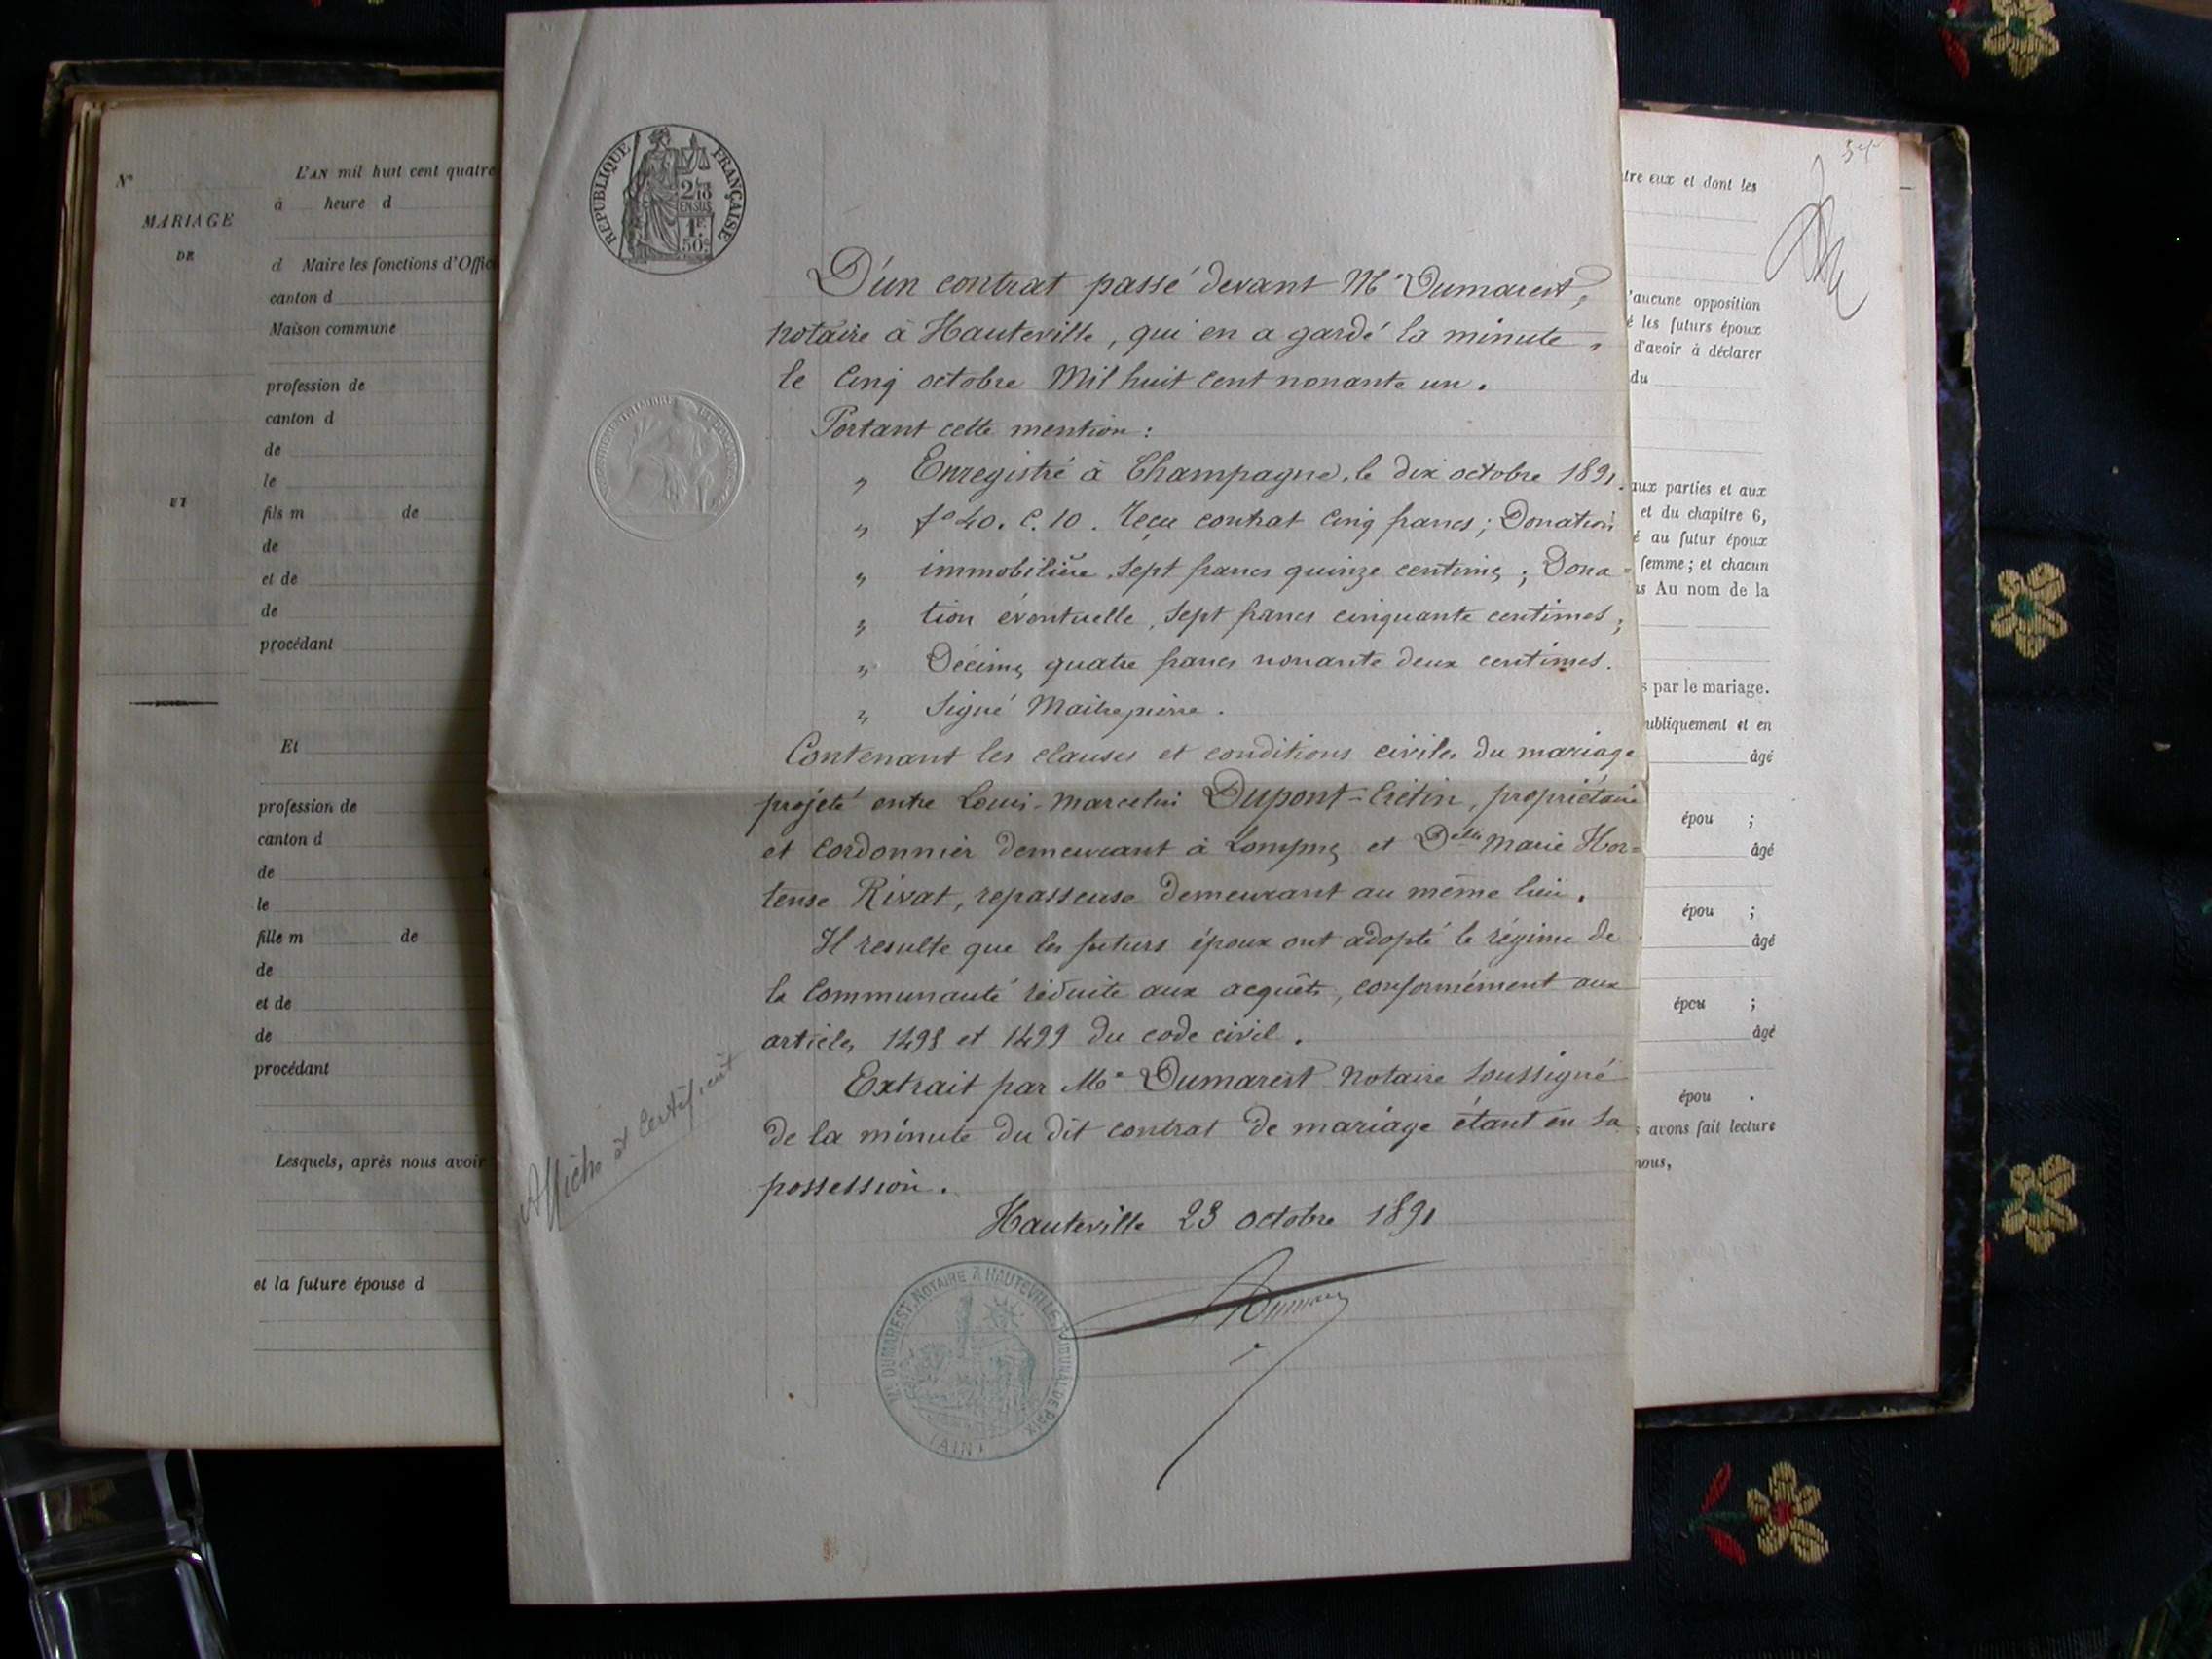 N°
MARIAGE
DE
ET
L'AN mil huit cent quatre
à heure d
d Maire les fonctions d'Offic
canton d
Maison commune
profession de
canton d
de
le
fils m de
de
et de
de
procédant
Et
profession de
canton d
de
le
fille m de
de
et de
de
procédant
Lesquels, après nous avoir
et la future épouse d
RÉPUBLIQUE FRANÇAISE
2/10
EN SUS
1F.
50c.
D'un contrat passé devant Me Dumarest,
notaire à Hauteville, qui en a gardé la minute,
le Cinq octobre Mil huit cent nonante un.
Portant cette mention :
" Enregistré à Champagne, le dix octobre 1891.
" fo 40. C. 10. Reçu contrat Cinq francs ; Donation
" immobilière, sept francs quinze centimes ; Dona=
" tion éventuelle, sept francs cinquante centimes ;
" Décimes, quatre francs nonante deux centimes.
" Signé Maitrepierre.
Contenant les clauses et conditions civiles du mariage
projeté entre Louis-Marcelin Dupont-Crétin, propriétaire
et Cordonnier demeurant à Lompnes et Delle Marie Hor=
tense Rivat, repasseuse demeurant au même lieu.
Il resulte que les futurs époux ont adopté le régime de
la Communauté réduite aux acquêts, conformément aux
articles 1498 et 1499 du code civil.
Extrait par Me Dumarest Notaire soussigné
de la minute du dit contrat de mariage étant en sa
possession.
Hauteville 23 octobre 1891
Affiche et Certificat
Me DUMAREST, NOTAIRE À HAUTEVILLE, TRIBUNAL DE PAIX
(AIN)
tre eux et dont les
'aucune opposition
é les futurs époux
d'avoir à déclarer
du
aux parties et aux
et du chapitre 6,
é au futur époux
femme ; et chacun
is Au nom de la
s par le mariage.
ubliquement et en
âgé
épou ;
âgé
épou ;
âgé
épou ;
âgé
épou .
s avons fait lecture
nous,